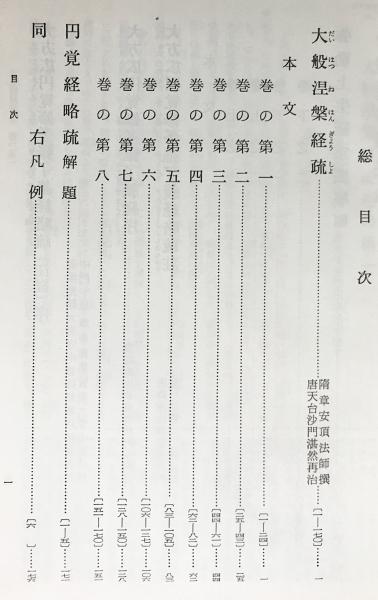 総目次
大般涅槃経疏 隋章安頂法師撰 唐天台沙門湛然再治 〔一―一七〇〕 一
だいはつねはんぎょうしょ
本文
巻の第一 〔一―二四〕 一
巻の第二 〔二五―四三〕 二五
巻の第三 〔四四―六一〕 四四
巻の第四 〔六二―八二〕 六二
巻の第五 〔八三―一〇五〕 八三
巻の第六 〔一〇六―一二七〕 一〇六
巻の第七 〔一二八―一五〇〕 一二八
巻の第八 〔一五一―一七〇〕 一五一
円覚経略疏解題 〔一―五〕
同右凡例 〔六〕
目次
一